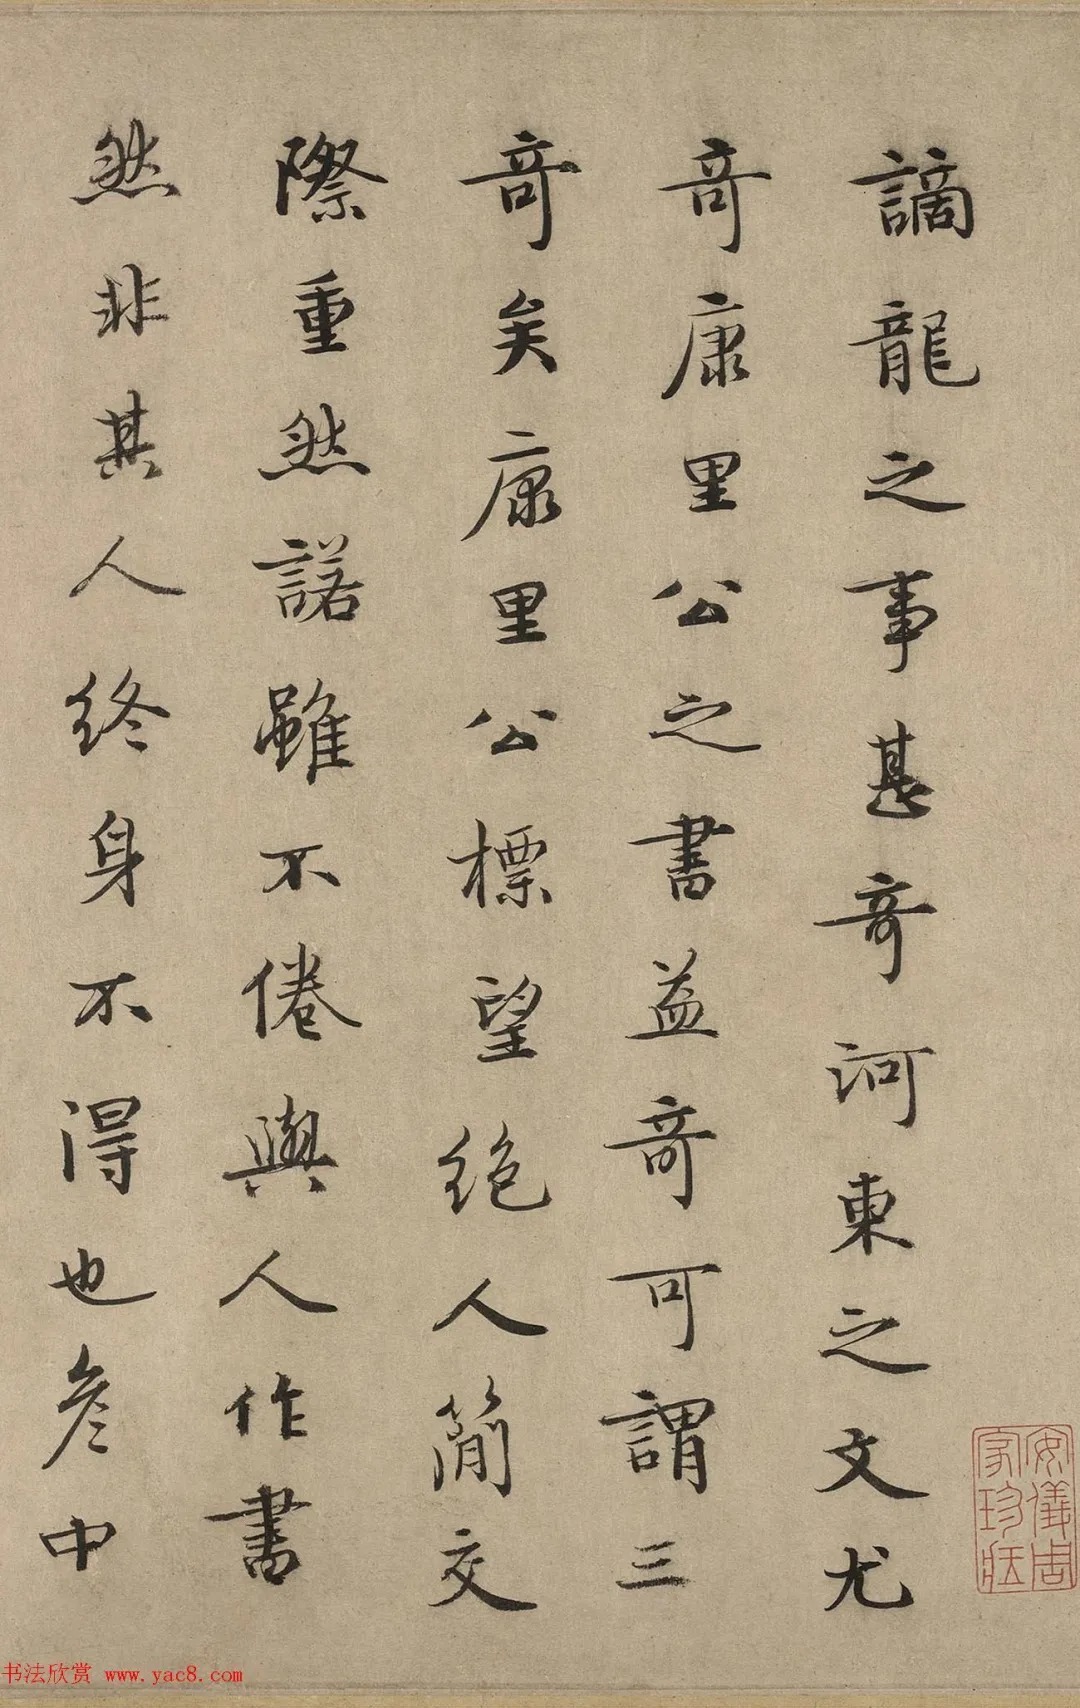 謫龍之事甚奇河東之文尤
奇康里公之書益奇可謂三
奇矣康里公標望絶人簡交
際重然諾雖不倦與人作書
然非其人终身不得也彦中
安儀周家珍藏
书法欣赏 www.yac8.com